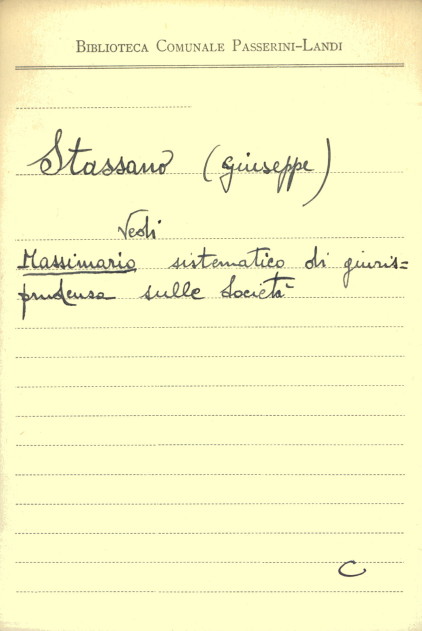 Biblioteca Comunale Passerini-Landi
Stassano (Giuseppe)
Vedi
Massimario sistematico di giuris=
prudenza sulle Società
C